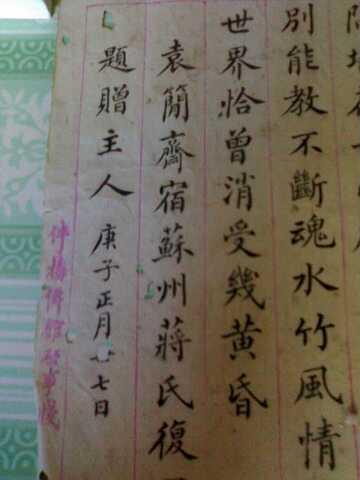 別能教不斷魂水竹風情
世界恰曾消受幾黃昏
袁簡齋宿蘇州蔣氏復
題贈主人 庚子正月廿七日